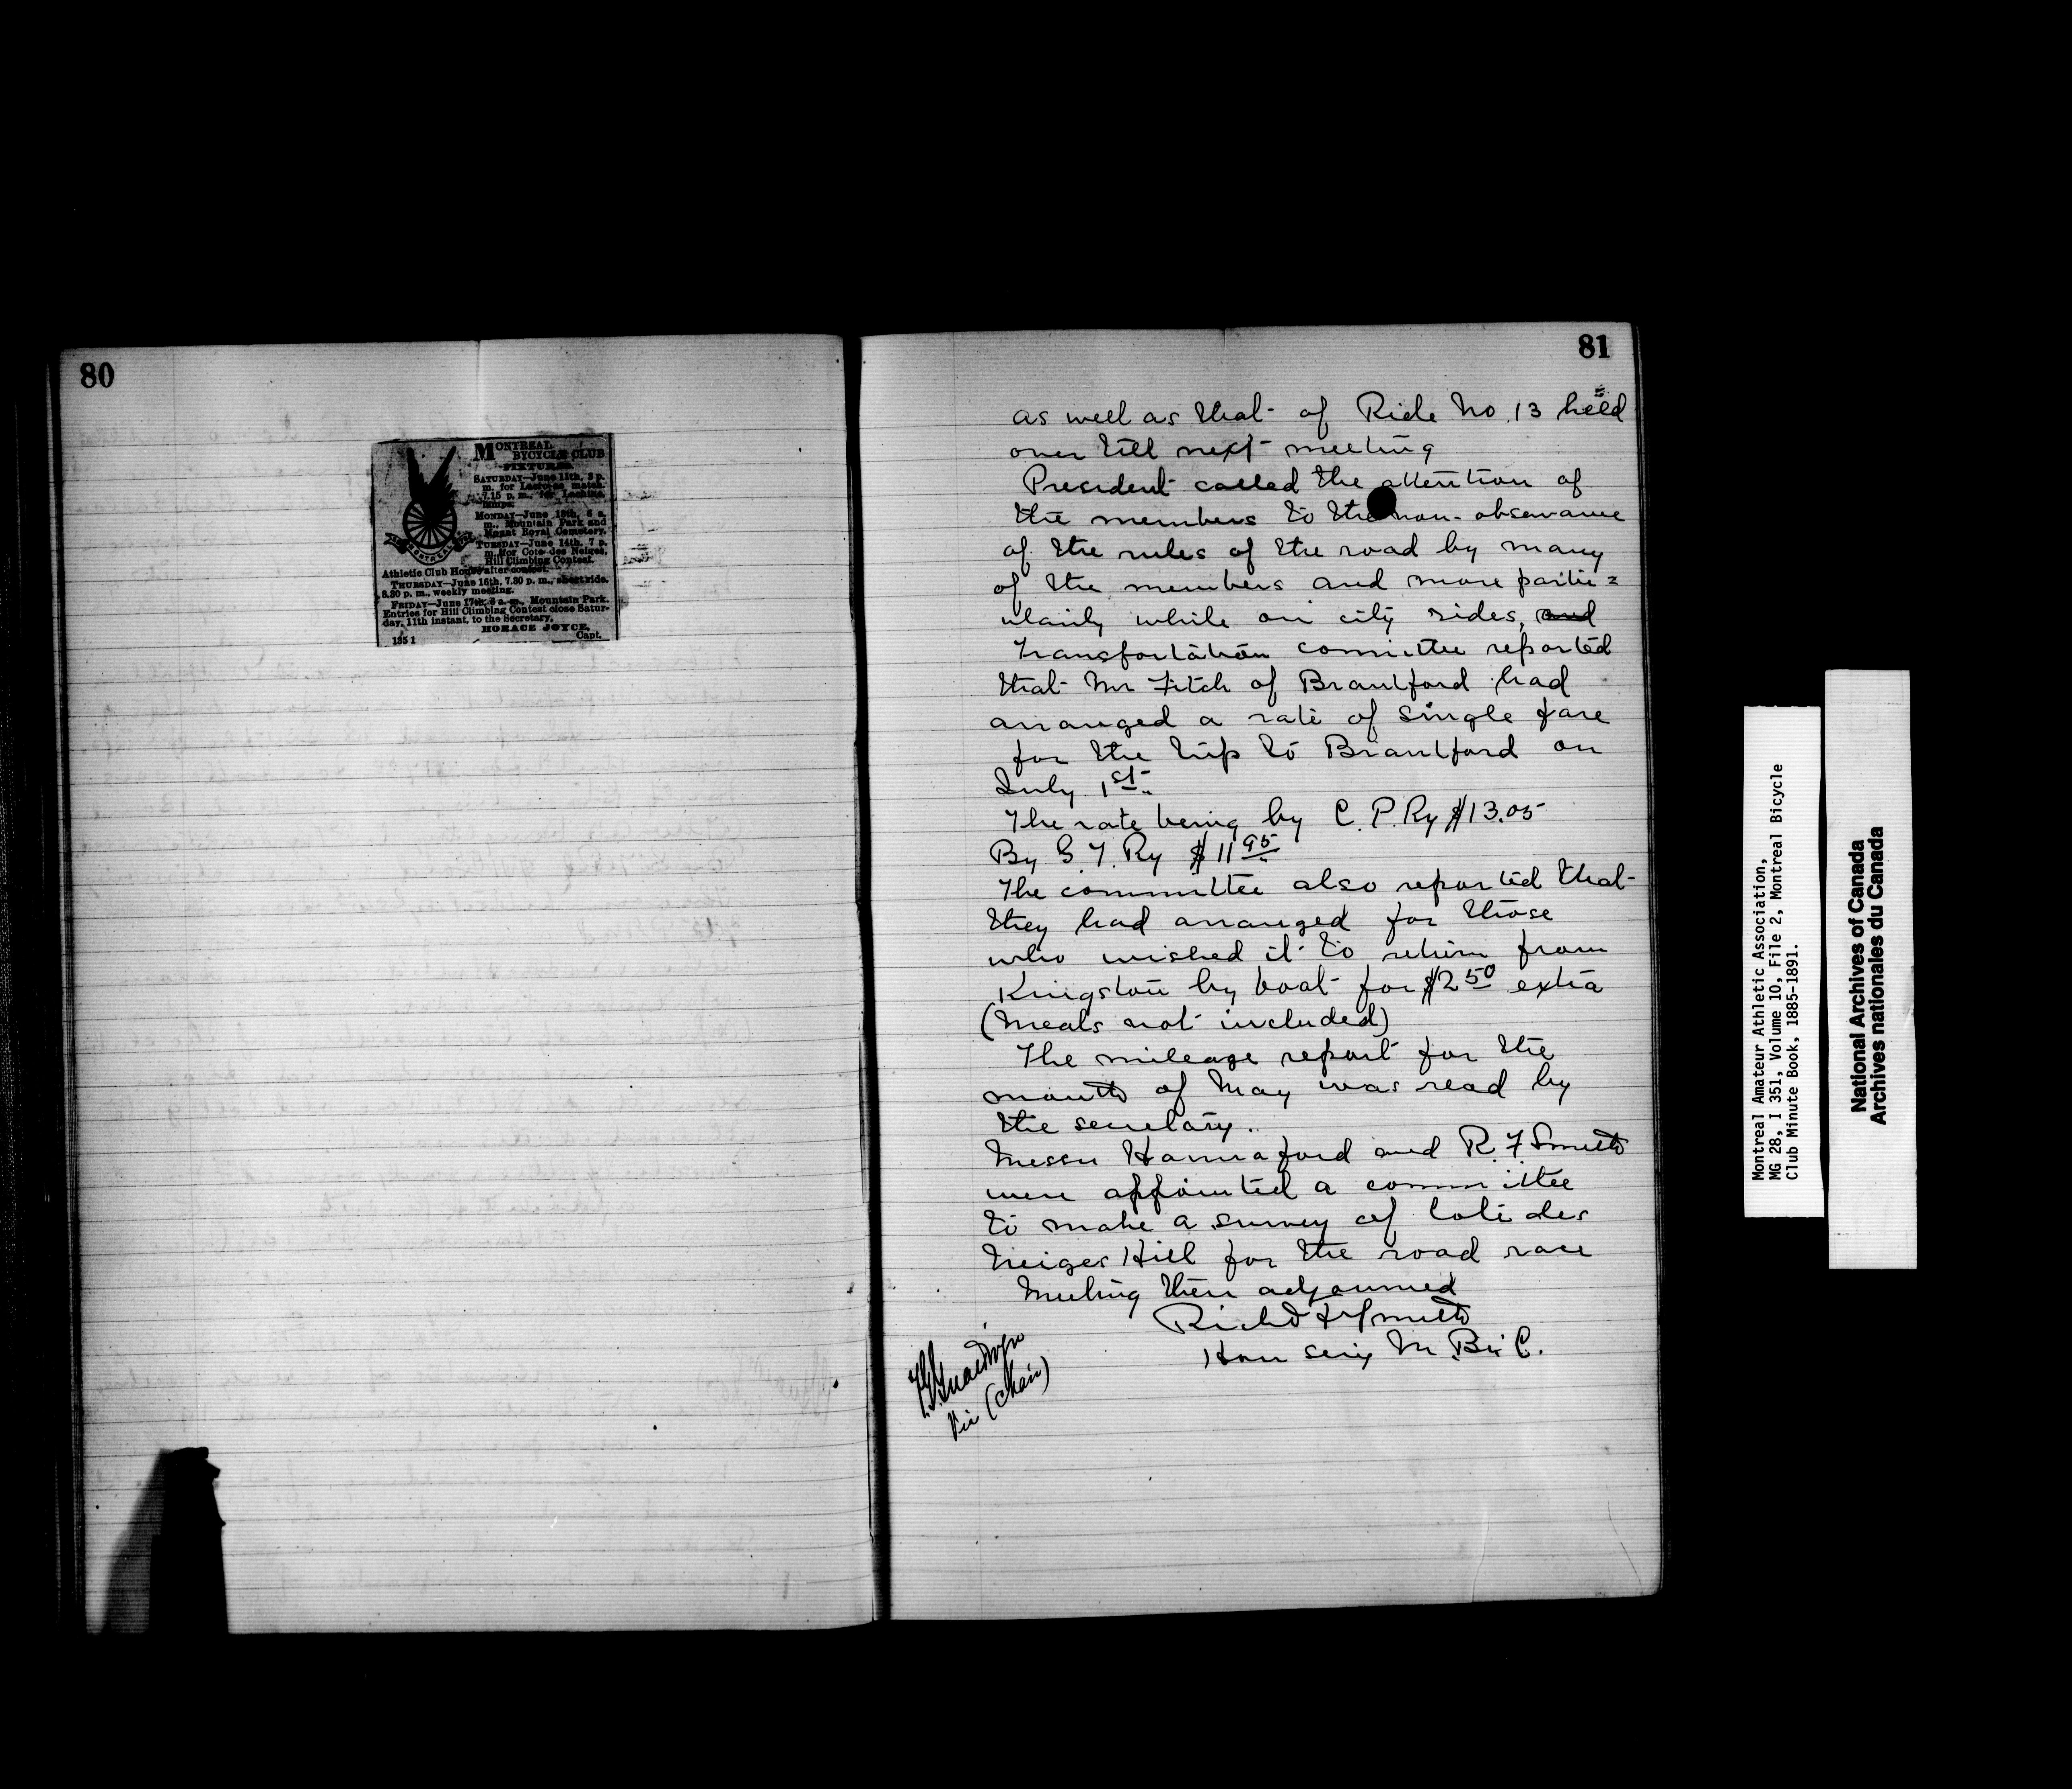 80
MONTREAL
BYCYCLE CLUB
FIXTURES.
SATURDAY—June 11th, 3 p.
m. for Lacrosse match.
7.15 p. m., for Lachine.
lamps.
MONDAY—June 13th, 6 a.
m., Mountain Park and
Mount Royal Cemetery.
TUESDAY—June 14th, 7 p.
m. for Cote des Neiges,
Hill Climbing Contest.
Athletic Club House after contest.
THURSDAY—June 16th, 7.30 p. m., short ride.
8.30 p. m., weekly meeting.
FRIDAY—June 17th, 6 a. m., Mountain Park.
Entries for Hill Climbing Contest close Satur-
day, 11th instant, to the Secretary,
HORACE JOYCE,
Capt.
135 1
81
as well as that of Ride No. 13 held
over till next meeting
President called the attention of
the members to the non-observance
of the rules of the road by many
of the members and more partic=
ularly while on city rides, and
Transportation committee reported
that Mr Fitch of Brantford had
arranged a rate of single fare
for the trip to Brantford on
July 1st.
The rate being by C. P. Ry $13.05
By G. T. Ry $11 95
The committee also reported that
they had arranged for those
who wished it to return from
Kingston by boat for $2 50 extra
(Meals not included)
The mileage report for the
month of May was read by
the secretary.
Messrs Hannaford and R. F Smith
were appointed a committee
to make a survey of Cote des
Neiges Hill for the road race
Meeting then adjourned
Richd F Smith
Hon Secy M. Bi. C.
(Chair)
Montreal Amateur Athletic Association,
MG 28, I 351, Volume 10, File 2, Montreal Bicycle
Club Minute Book, 1885-1891.
National Archives of Canada
Archives nationales du Canada